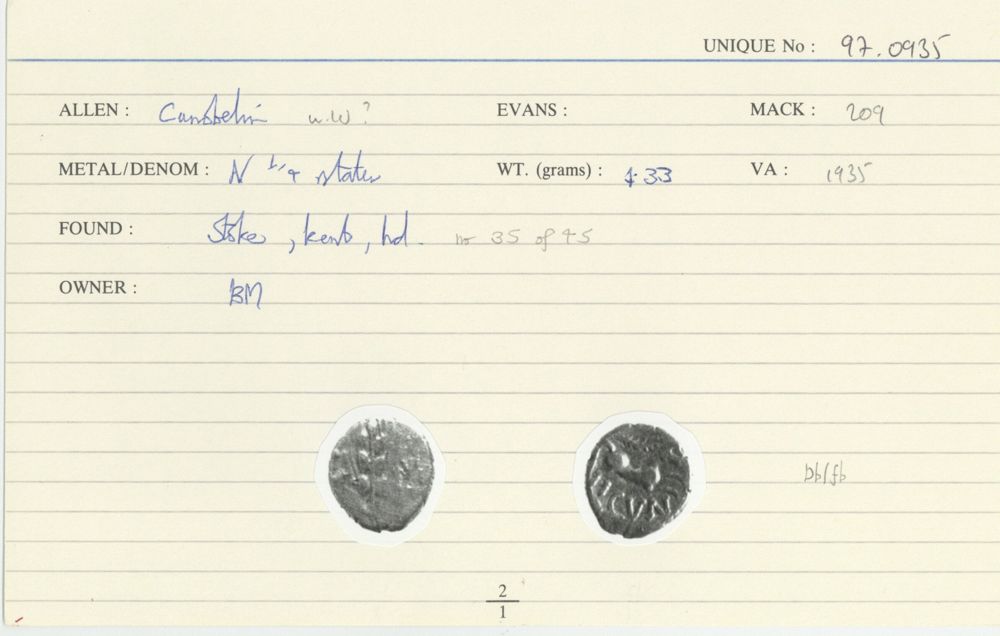 UNIQUE No : 97.0935
ALLEN : Cunobelin w.w? EVANS : MACK : 209
METAL/DENOM : N 1/4 stater WT. (grams) : 1.33 VA : 1935
FOUND : Stoke, kent, hd. no 35 of 45
OWNER : BM
CVN
bb/fb
2
1